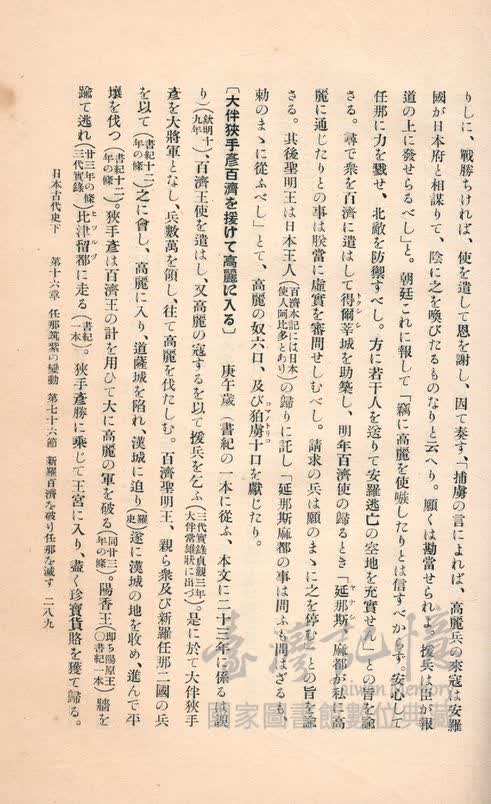 りしに、戰勝ちければ、使を遣して恩を謝し、因て奏す、「捕虜の言によれば、高麗兵の來寇は安羅
國が日本府と相謀りて、陰に之を喚びたるものなりと云へり。願くは勘當せられよ。援兵は臣が報
道の上に發せらるべし」と。朝廷これに報して「竊に高麗を使嗾したりとは信すべからず。安心して
任那に力を戮せ、北敵を防禦すべし。方に若干人を送りて安羅逃亡の空地を充實せん」との旨を諭
さる。尋で衆を百濟に遣はして得爾莘城を助築し、明年百濟使の歸るとき「延那斯、麻都が私に高
トクジシン ヤナシ マツ
麗に通じたりとの事は朕當に虛實を審問せしむべし。請求の兵は願のまゝに之を停む」との旨を諭
さる。其後聖明王は日本王人(百濟本記には日本使人阿比多とあり)の歸りに託し「延那斯麻都の事は問ふも問はざるも、
勅のまゝに從ふべし」とて、高麗の奴六口、及び狛虜十口を獻じたり。
コマノトリコ
〔大伴狹手彥百濟を援けて高麗に入る〕 庚午歲(書紀の一本に從ふ、本文に二十三年に係るは誤
り)(欽明十九年)、百濟王使を遣はし、又高麗の寇するを以て援兵を乞ふ(三代實錄貞觀三年大伴常雄狀に出づ)。是に於て大伴狹手
彥を大將軍となし、兵數萬を領し、往て高麗を伐たしむ。百濟聖明王、親ら衆及び新羅任那二國の兵
を以て(書紀十二年の條)之に會し、高麗に入り、道薩城を陷れ、漢城に迫り(羅史)遂に漢城の地を收め、進んで平
壤を伐つ(書紀十二年の條)。狹手彥は百濟王の計を用ひて大に高麗の軍を破る(同廿三年の條)。陽香王(即ち陽原王〇書紀一本)牆を
踰て逃れ(廿三年の條三代實錄)比津留都に走る(書紀一本)。狹手彥勝に乘じて王宮に入り、盡く珍寶貨賂を獲て歸る。
ヒツルツ
日本古代史下 第十六章 任那筑紫の變動 第七十六節 新羅百濟を破り任那を滅す 二八九
臺灣記憶
Taiwan Memory
國家圖書館數位典藏